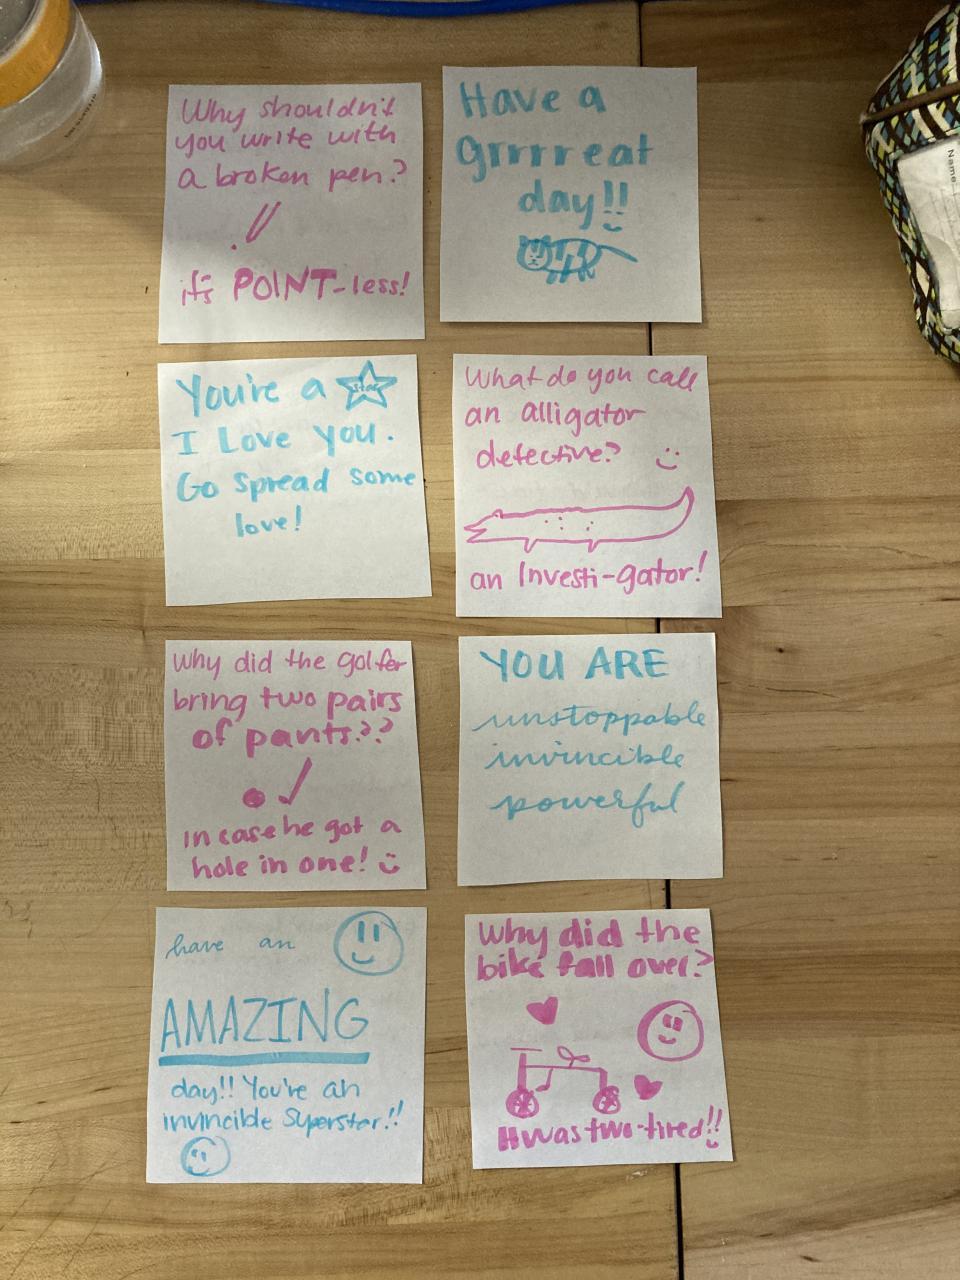 Why shouldn't
you write with
a broken pen?
it's POINT-less!
Have a
grrrreat
day!!
You're a star
I Love you.
Go spread some
love!
What do you call
an alligator
detective?
an Investi-gator!
Why did the golfer
bring two pairs
of pants??
in case he got a
hole in one!
YOU ARE
unstoppable
invincible
powerful
have an
AMAZING
day!! You're an
invincible Superstar!!
Why did the
bike fall over?
It was two-tired!!
Name